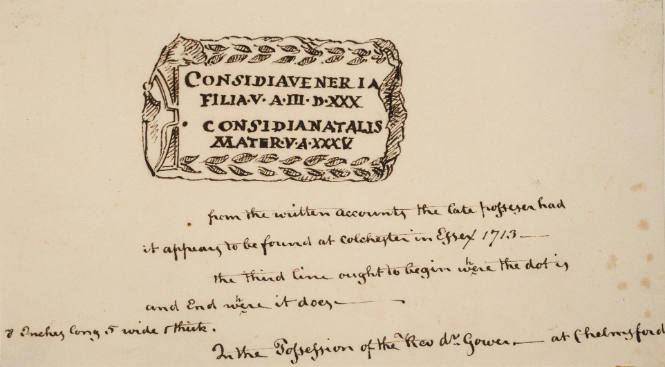 CONSIDIA VENERIA
FILIA·V·A·III·D·XXX
CONSIDIA NATALIS
MATER·V·A·XXXV
from the written accounts the late possesser had
it appears to be found at Colchester in Essex 1713 —
the third line ought to begin were the dot is
and End were it does —
8 Inches long, 5 wide thick.
In the Possession of the Rev dr. Gower — at Chelmsford